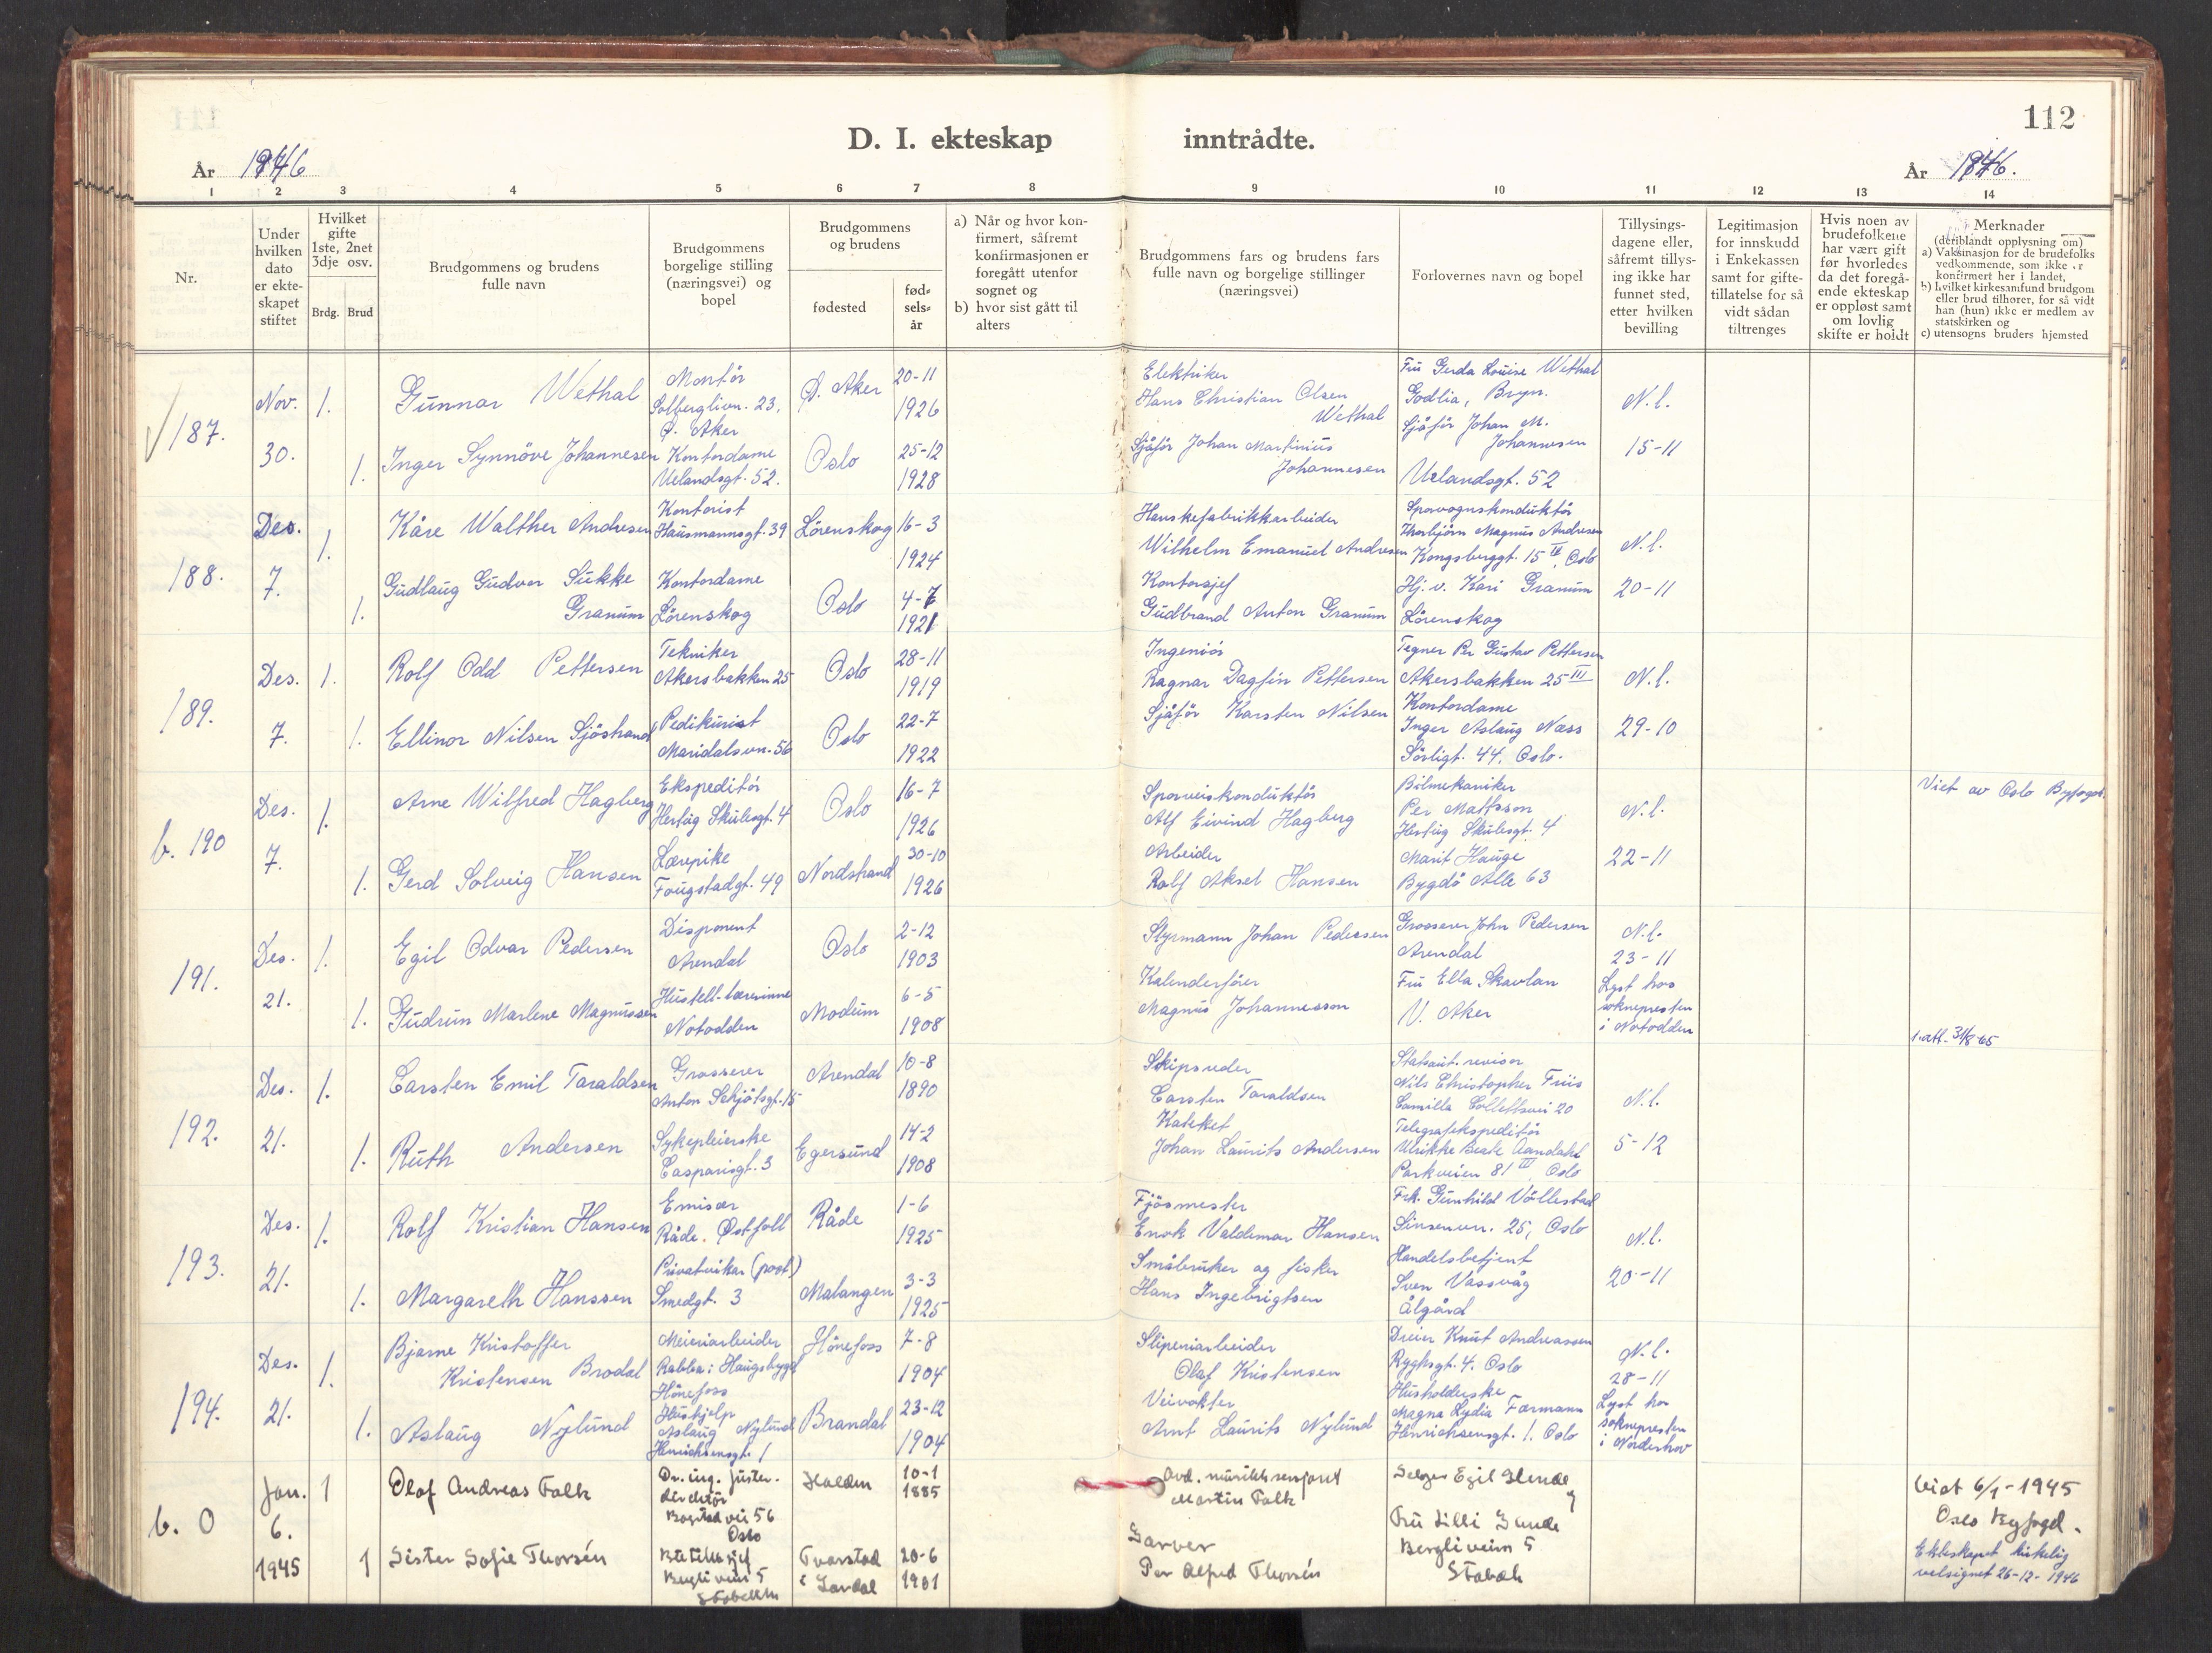 112
D. I. ekteskap inntrådte.
År 1946
År 1946.
1 2 3 4 5 6 7 8 9 10 11 12 13 14
Nr.
Under hvilken dato er ekte-skapet stiftet
Hvilket gifte 1ste, 2net 3dje osv.
Brdg. Brud
Brudgommens og brudens fulle navn
Brudgommens borgelige stilling (næringsvei) og bopel
Brudgommens og brudens
fødested
fød-sels-år
a) Når og hvor kon-firmert, såfremt konfirmasjonen er foregått utenfor sognet og
b) hvor sist gått til alters
Brudgommens fars og brudens fars fulle navn og borgelige stillinger (næringsvei)
Forlovernes navn og bopel
Tillysings-dagene eller, såfremt tillys-ing ikke har funnet sted, etter hvilken bevilling
Legitimasjon for innskudd i Enkekassen samt for gifte-tillatelse for så vidt sådan tiltrenges
Hvis noen av brudefolkene har vært gift før hvorledes da det foregå-ende ekteskap er oppløst samt om lovlig skifte er holdt
Merknader
(deriblandt opplysning om)
a) Vaksinasjon for de brudefolks vedkommende, som ikke er konfirmert her i landet,
b) hvilket kirkesamfund brudgom eller brud tilhører, for så vidt han (hun) ikke er medlem av statskirken og
c) utensogns bruders hjemsted
187.
Nov. 30.
1.
Gunnar Wethal
Montør
Solberglivn. 23,
Ø. Aker
Ø. Aker
20-11
1926
Elektriker
Hans Christian Olsen
Wethal
Fru Gerda Louise Wethal
Godlia, Bryn.
N.l.
15-11
1.
Inger Synnöve Johannesen
Kontordame
Uelandsgt. 52.
Oslo
25-12
1928
Sjåför Johan Martinius
Johannesen
Sjåför Johan M.
Johannesen
Uelandsgt. 52
188.
Des. 7.
1.
Kåre Walther Andresen
Kontorist
Hausmannsgt. 39
Lörenskog
16-3
1924
Hanskefabrikkarbeider
Wilhelm Emanuel Andresen
Sporvognskonduktör
Thorbjörn Magnus Andresen
Kongsberggt. 15 IV, Oslo
N.l.
20-11
1.
Gudlaug Gudvor Sukke
Granum
Kontordame
Lörenskog
Oslo
4-7
1921
Kontorsjef
Gudbrand Anton Granum
Hj. v. Kari Granum
Lörenskog
189.
Des. 7.
1.
Rolf Odd Pettersen
Tekniker
Akersbakken 25
Oslo
28-11
1919
Ingeniör
Ragnar Dagfin Pettersen
Tegner Per Gustav Pettersen
Akersbakken 25 III
N.l.
29-10
1.
Ellinor Nilsen Sjöstrand
Pedikurist
Maridalsvn. 56
Oslo
22-7
1922
Sjåför Karsten Nilsen
Kontordame
Inger Aslaug Næss
Sörligt. 44, Oslo.
b. 190
Des. 7.
1.
Arne Wilfred Hagberg
Ekspeditör
Hertug Skulesgt. 4
Oslo
16-7
1926
Sporveiskonduktör
Alf Eivind Hagberg
Bilmekaniker
Per Mattsson
Hertug Skulesgt. 4
N.l.
22-11
Viet av Oslo Byfogd.
1.
Gerd Solveig Hansen
Lærepike
Fougstadgt. 49
Nordstrand
30-10
1926
Arbeider
Rolf Aksel Hansen
Marit Hauge
Bygdö Alle 63
191.
Des. 21.
1.
Egil Odvar Pedersen
Disponent
Arendal
Oslo
2-12
1903
Styrmann Johan Pedersen
Grosserer John Pedersen
Arendal
N.l.
23-11
Lyst hos
soknepresten
i Notodden
1.
Gudrun Marlene Magnussen
Husstell-lærerinne
Notodden
Modum
6-5
1908
Kalenderförer
Magnus Johannesson
Fru Ella Skavlan
V. Aker
1. att. 31/8-65
192.
Des. 21.
1.
Carsten Emil Taraldsen
Grosserer
Anton Schjötsgt. 15
Arendal
10-8
1890
Skipsreder
Carsten Taraldsen
Statsaut. revisor
Nils Christopher Friis
Camilla Collettsvei 20
N.l.
5-12
1.
Ruth Andersen
Sykepleierske
Casparisgt. 3
Egersund
14-2
1908
Kateket
Johan Laurits Andersen
Telegrafekspeditör
Ulrikke Beate Aandahl
Parkveien 81 III, Oslo
193.
Des. 21.
1.
Rolf Kristian Hansen
Emisær
Råde. Østfold
Råde
1-6
1925
Fjösmester
Enok Valdemar Hansen
Frk. Gunhild Vållestad
Sinsenvn. 25, Oslo
N.l.
20-11
1.
Margareth Hanssen
Privatvikar (post)
Smedgt. 3
Malangen
3-3
1925
Småbruker og fisker
Hans Ingebrigtsen
Handelsbetjent
Sven Vassvåg
Ålgård
194.
Des. 21.
1.
Bjarne Kristoffer
Kristensen Brodal
Meieriarbeider
Rabba i Haugsbygd
Hönefoss
Hönefoss
7-8
1904
Sliperiarbeider
Olaf Kristensen
Dreier Knut Andreassen
Ryghsgt. 4. Oslo
N.l.
28-11
Lyst hos
soknepresten
i Norderhov
1.
Aslaug Nylund
Hushjelp
Aslaug Nylund
Henrichsensgt. 1
Brandal
23-12
1904
Veivokter
Arnt Laurits Nylund
Husholderske
Magna Lydia Færmann
Henrichsensgt. 1. Oslo
b. 0
Jan. 6. 1945
1
Olaf Andreas Falk
Dr. ing. Juster-
direktör
Bogstadvei 56
Oslo
Halden
10-1
1885
Avd. musikksersjant
Martin Falk
Selger Egil Sunde
og
Fru Lilli Sunde
Bergliveien 5
Stabæk
Viet 6/1-1945
Oslo Byfogd.
Ekteskapet kirkelig
velsignet 26-12-1946
1
Sister Sofie Thorsén
Bergliveien 5
Stabekk
Tvarstad
i Lardal
20-6
1901
Garver
Per Alfred Thorsén